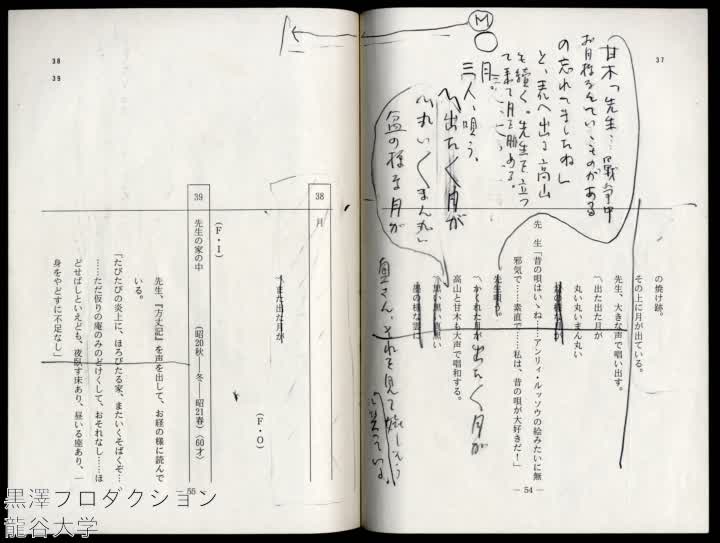 37
M
甘木「先生…戦争中
お月様なんていゝものがある
の忘れてましたねし
と、表へ出る 高山
も続く。先生も立つ
て来て月を眺める。
月。
三人、唄う。
〽出た〱月が
〽丸い〱まん丸い
盆の様な月が
の焼け跡。
その上に月が出ている。
先生、大きな声で唱い出す。
〽出た出た月が
丸い丸いまん丸い
盆の様な月が
先　生「昔の唄はいゝね……アンリィ・ルッソウの絵みたいに無
邪気で……素直で……私は、昔の唄が大好きだ！」
先生唄う。
〽かくれた月が
出た〱月が
高山と甘木も大声で唱和する。
〽黒い黒い真黒い
墨の様な雲に
奥さん、それを見て嬉しそう
に笑っている。
― 54 ―
38
39
38　月
〽また出た月が
（F・O）
（F・I）
39　先生の家の中　（昭20秋――冬――昭21春）（60才）
先生、『方丈記』を声を出して、お経の様に読んで
いる。
「たびたびの炎上に、ほろびたる家、またいくそばくぞ…
……ただ仮りの庵のみのどけくして、おそれなし……ほ
どせばしといえども、夜臥す床あり、昼いる座あり、一
身をやどすに不足なし」
55
黒澤プロダクション
龍谷大学